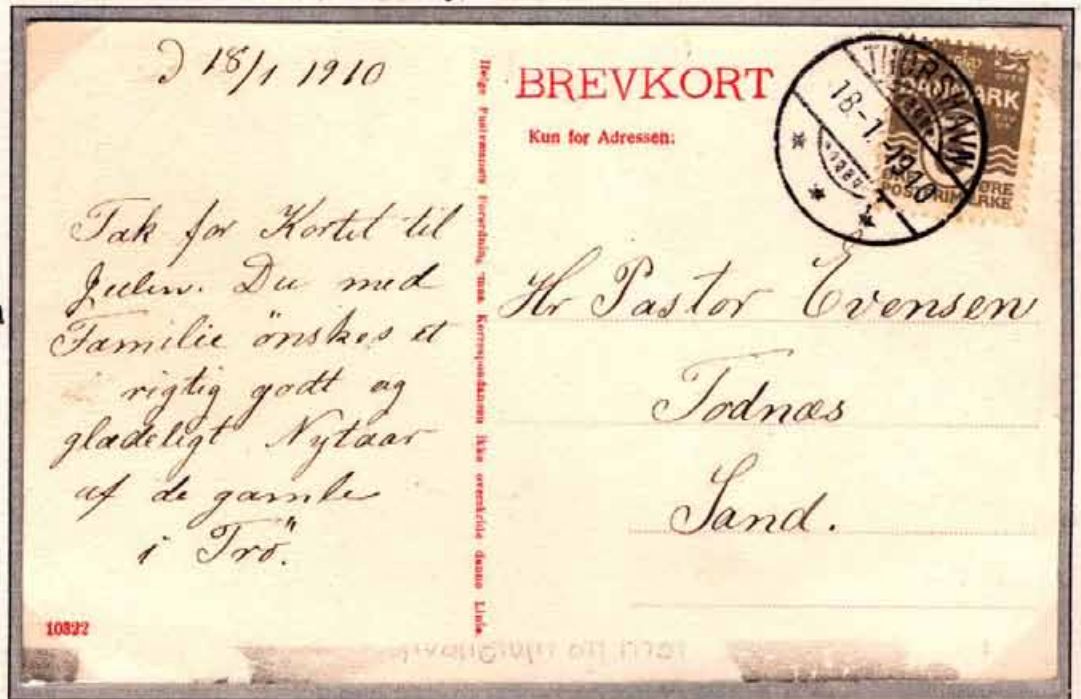 D 18/1 1910
Tak for Kortet til
Julen. Du med
Familie önskes et
rigtig godt og
glædeligt Nytaar
af de gamle
i Trö.
10322
Ifølge Postvæsnets Forordning, maa Korrespondancen ikke overskride denne Linie
BREVKORT
Kun for Adressen:
THORSHAVN
18-1.-1910
DANMARK
ØRE
POSTFRIMÆRKE
Hr Pastor Evensen
Todnæs
Sand.